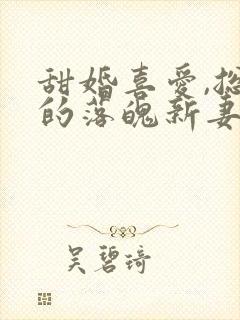 甜婚喜爱,总
的落魄新妻
吴碧琦